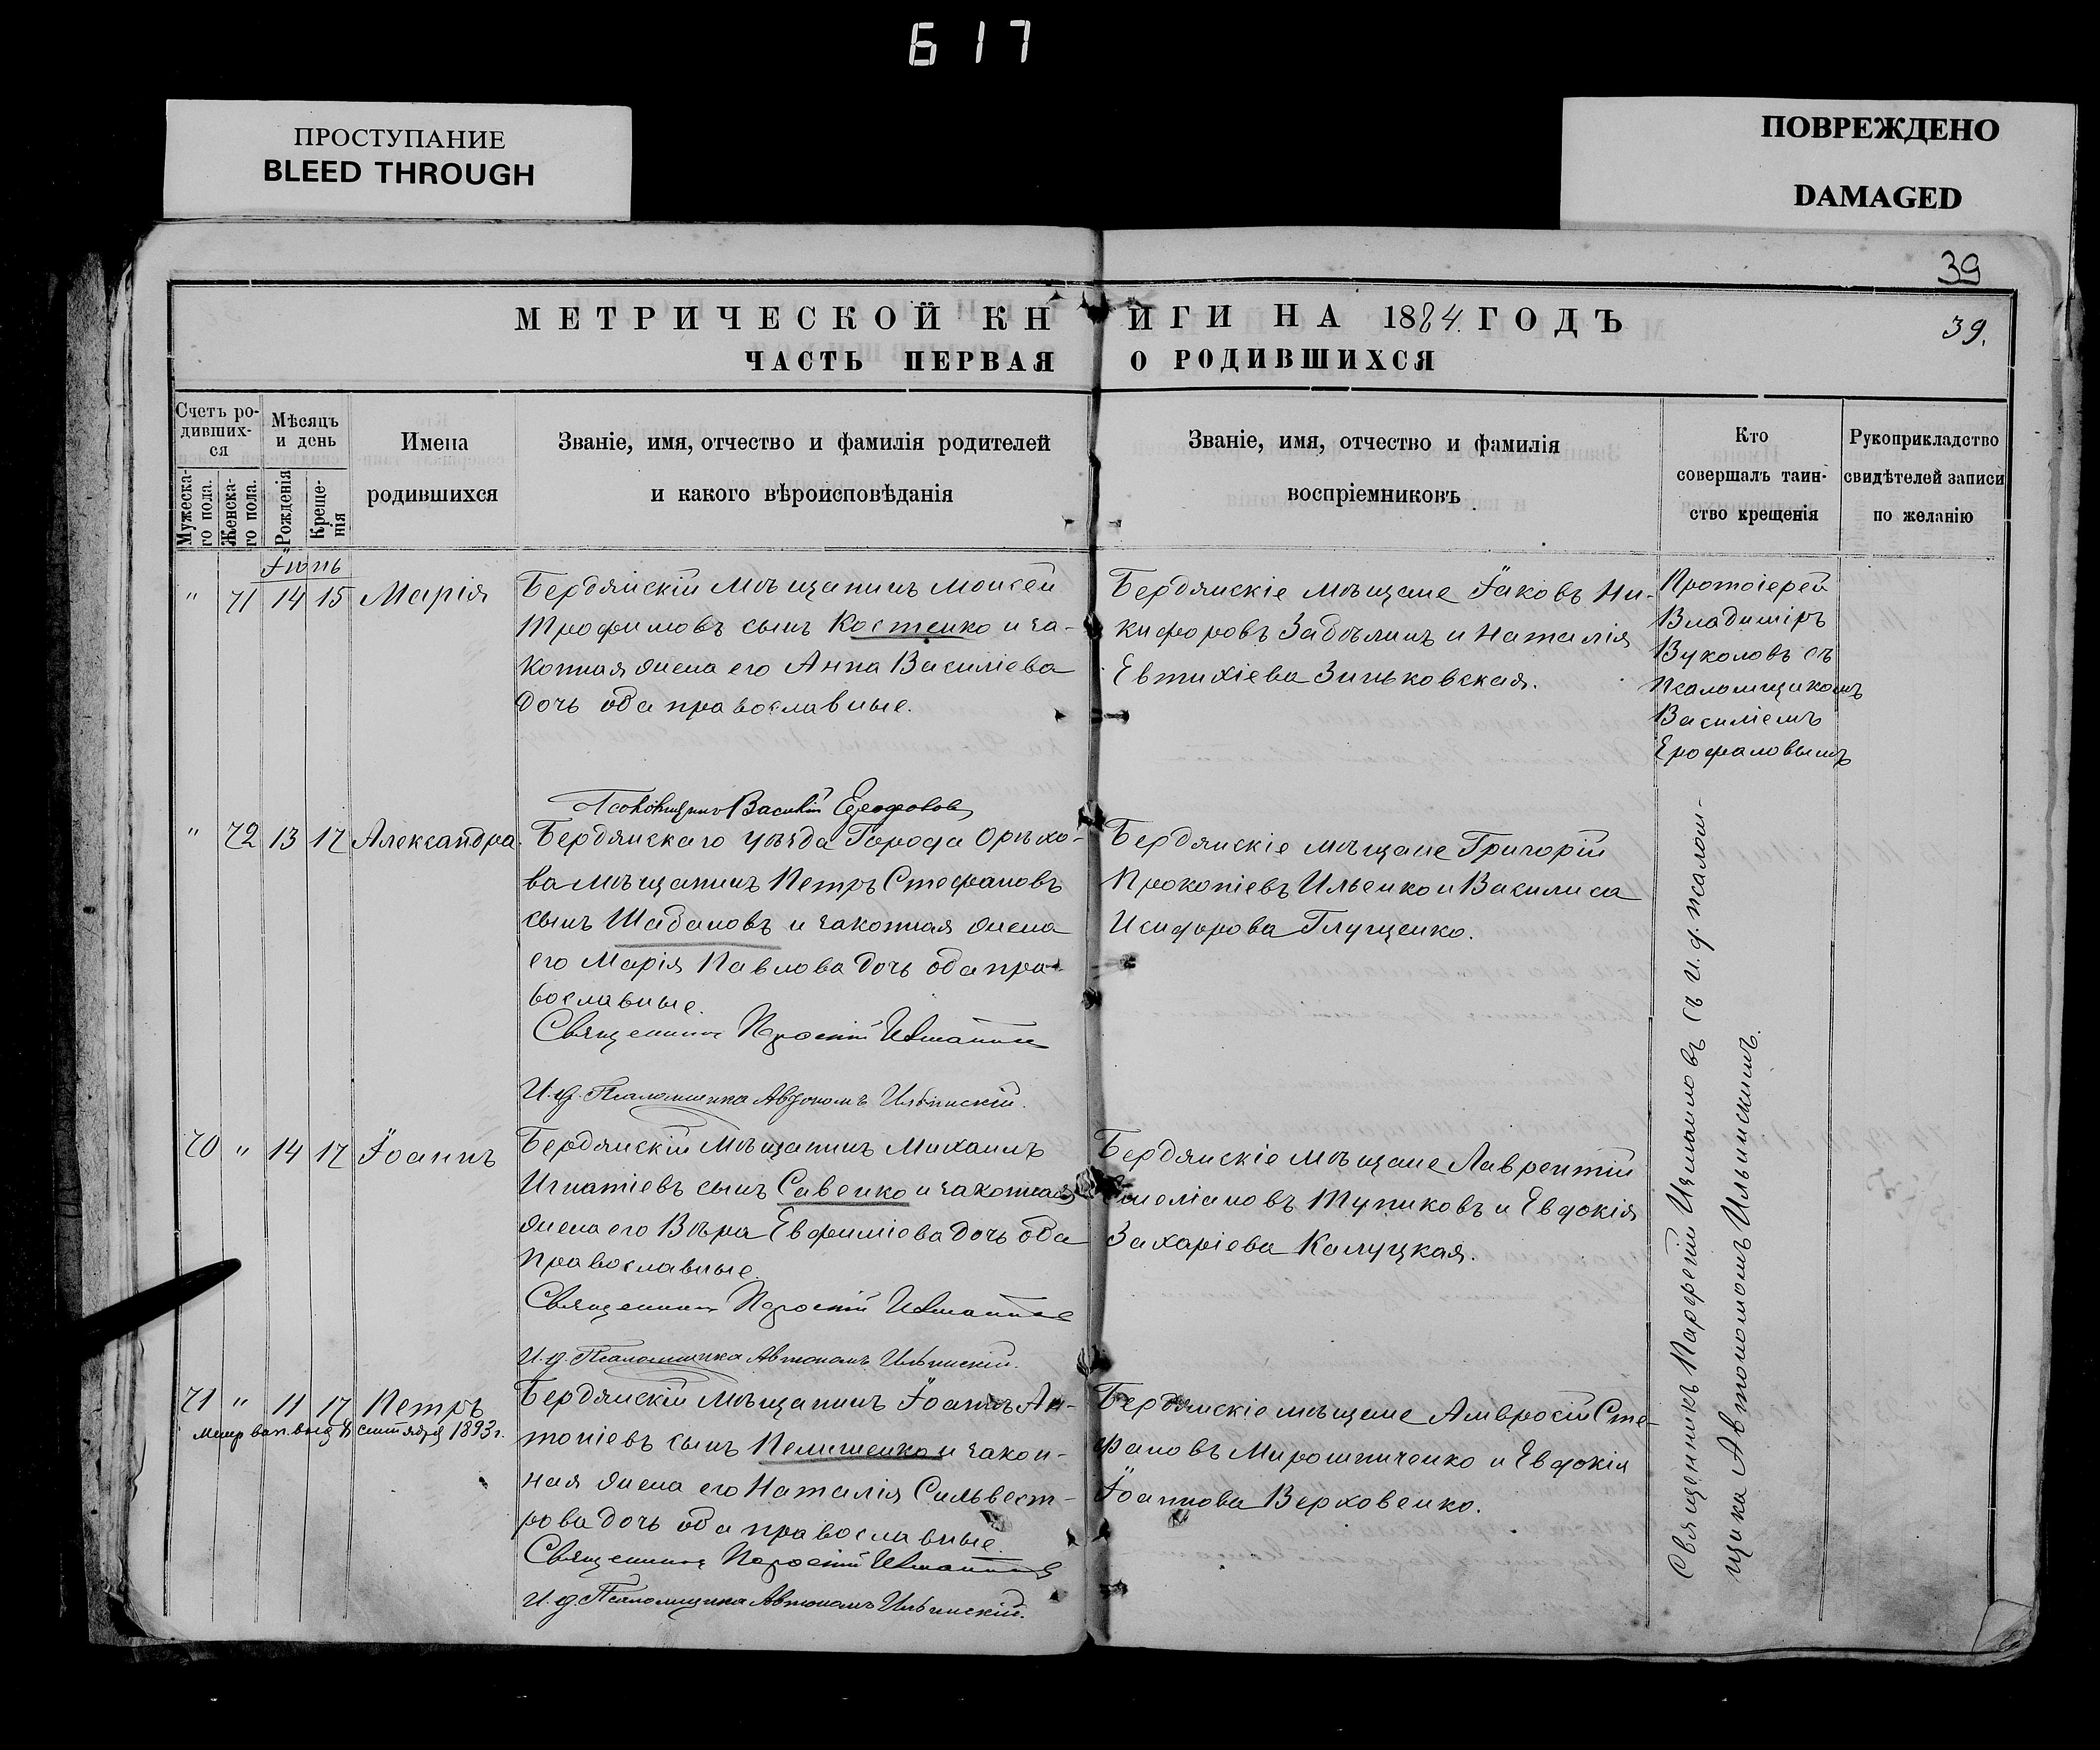 617
ПРОСТУПАНИЕ
BLEED THROUGH
ПОВРЕЖДЕНО
DAMAGED
39
МЕТРИЧЕСКОЙ КНИГИ НА 1884 ГОДЪ
39.
ЧАСТЬ ПЕРВАЯ О РОДИВШИХСЯ
Счетъ ро-
дивших-
ся
Мужеска-
го пола.
Женска-
го пола.
Мѣсяцъ
и день
Рожденія
Креще-
нія
Имена
родившихся
Званіе, имя, отчество и фамилія родителей
и какого вѣроисповѣданія
Званіе, имя, отчество и фамилія
воспріемниковъ
Кто
совершалъ таин-
ство крещенія
Рукоприкладство
свидѣтелей записи
по желанію
Іюнь
" 71 14 15 Марія
Бердянскій Мѣщанинъ Моисей
Трофимовъ сынъ Костенко и за-
конная жена его Анна Василіева
дочь оба православные.
Бердянскіе мѣщане Іаковъ Ни-
кифоровъ Забѣлинъ и Наталія
Евтихіева Зиньковская.
Протоіерей
Владиміръ
Вуколовъ съ
псаломщикомъ
Василіемъ
Ерофаловымъ
Псаломщикъ Василій
" 72 13 17 Александра
Бердянскаго уѣзда Города Орѣхо-
ва мѣщанинъ Петръ Стефановъ
сынъ Шабановъ и законная жена
его Марія Павлова дочь оба пра-
вославные.
Бердянскіе мѣщане Григорій
Прокопіевъ Ильенко и Василиса
Исидорова Глущенко.
Священникъ
И.д. Псаломщика Автономъ Ильинскій.
70 " 14 17 Іоаннъ
Бердянскій Мѣщанинъ Михаилъ
Игнатіевъ сынъ Савенко и законная
жена его Вѣра Евфиміева дочь оба
православные.
Бердянскіе мѣщане Лаврентій
Емеліановъ Тупиковъ и Евдокія
Захаріева Калуцкая.
Священникъ
И.д. Псаломщика Автономъ Ильинскій.
71 " 11 17 Петръ
сентября 1893г.
Бердянскій Мѣщанинъ Іоаннъ Ан-
тоніевъ сынъ Пелишенко и закон-
ная жена его Наталія Сильвест-
рова дочь оба православные.
Бердянскіе мѣщане Амвросій Сте-
фановъ Мирошниченко и Евдокія
Іоаннова Верховенко.
Священникъ
И.д. Псаломщика Автономъ Ильинскій.
Священникъ Парфеній Измаиловъ съ и.д. псалом-
щика Автономомъ Ильинскимъ.